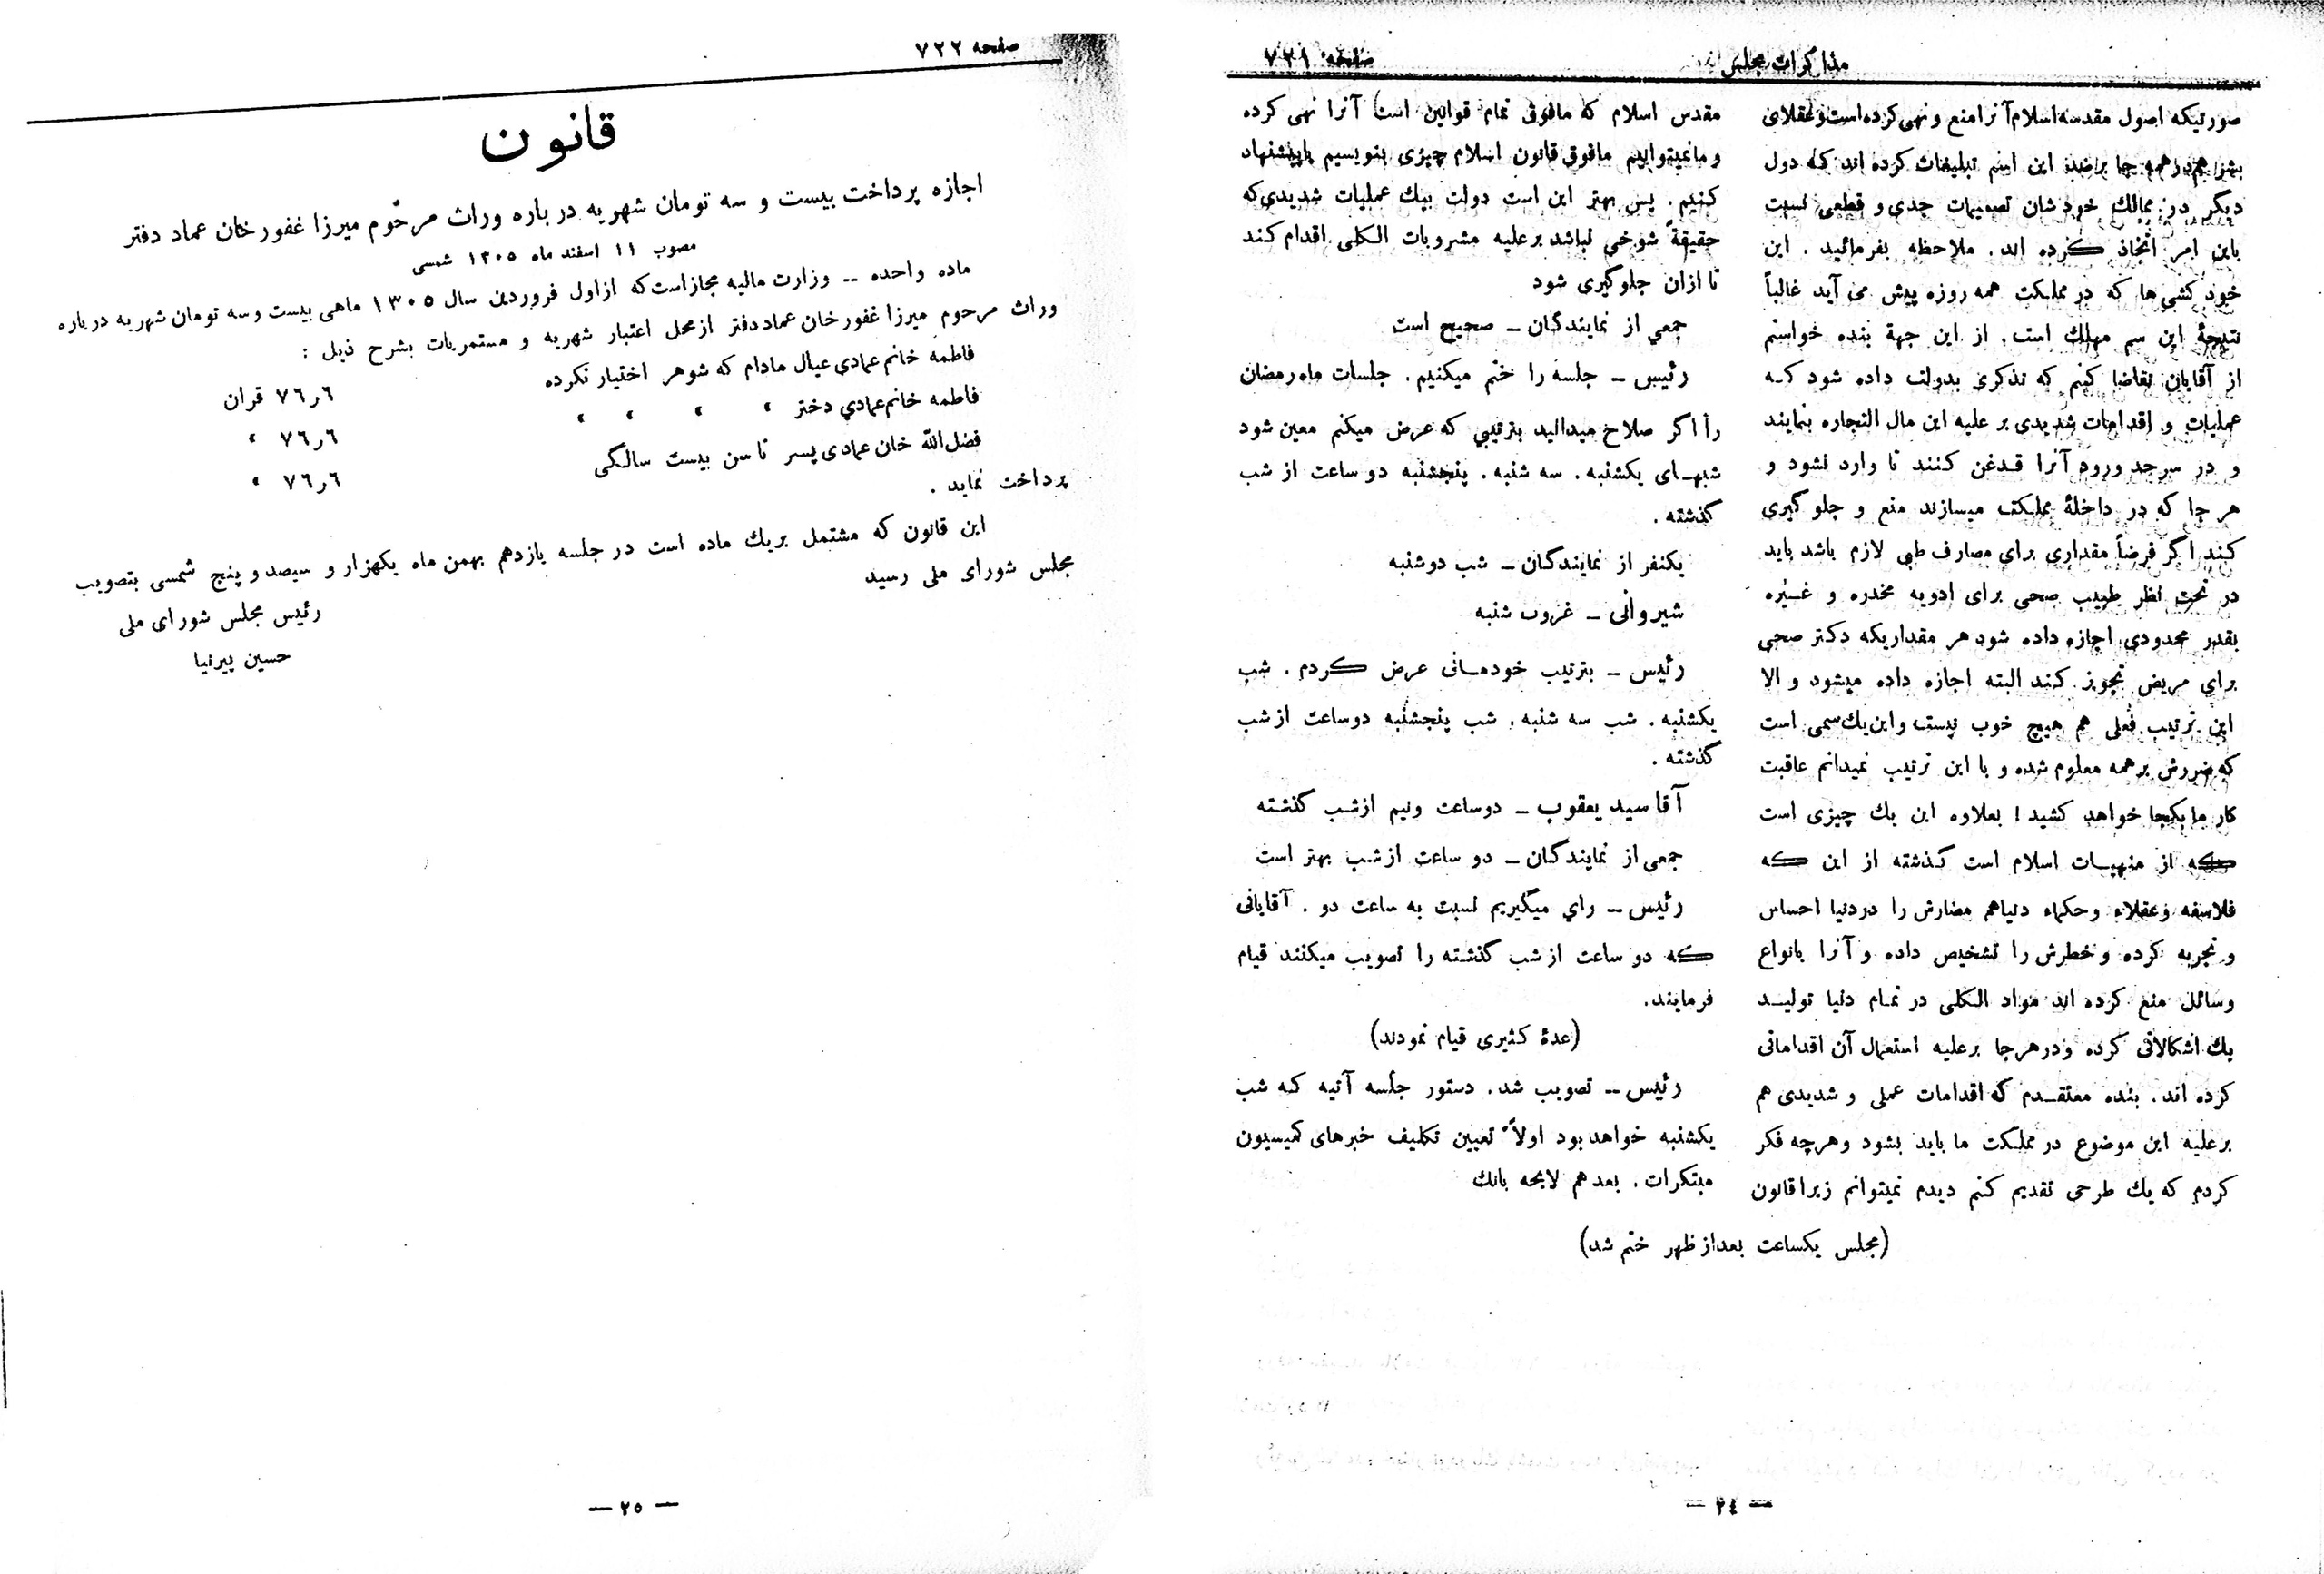 مذاکرات مجلس
صفحه ۷۲۱
صورتیکه اصول مقدسه اسلام آنرا منع و نهی کرده است و عقلای
بشر هم در همه جا برضد این اسم تبلیغات کرده اند که دول
دیگر در ممالک خودشان تصمیمات جدی و قطعی نسبت
باین امر اتخاذ کرده اند. ملاحظه بفرمائید. این
خودکشی ها که در مملکت همه روزه پیش می آید غالباً
نتیجهٔ این سم مهلک است. از این جهة بنده خواستم
از آقایان تقاضا کنم که تذکری بدولت داده شود که
عملیات و اقدامات شدیدی بر علیه این مال التجاره بنمایند
و در سرحد ورود آنرا قدغن کنند تا وارد نشود و
هر جا که در داخلهٔ مملکت میسازند منع و جلوگیری
کند اگر فرضاً مقداری برای مصارف طبی لازم باشد باید
در تحت نظر طبیب صحی برای ادویه مخدره و غیره
بقدر محدودی اجازه داده شود هر مقداریکه دکتر صحی
برای مریض تجویز کند البته اجازه داده میشود و الا
این ترتیب فعلی هم هیچ خوب نیست و این یک سمی است
که ضررش بر همه معلوم شده و با این ترتیب نمیدانم عاقبت
کار ما بکجا خواهد کشید! بعلاوه این یک چیزی است
که از منهیات اسلام است گذشته از این که
فلاسفه و عقلاء و حکماء دنیا هم مضارش را در دنیا احساس
و تجربه کرده و خطرش را تشخیص داده و آنرا بانواع
وسائل منع کرده اند مواد الکلی در تمام دنیا تولید
یک اشکالاتی کرده و در هر جا بر علیه استعمال آن اقداماتی
کرده اند. بنده معتقدم که اقدامات عملی و شدیدی هم
برعلیه این موضوع در مملکت ما باید بشود و هرچه فکر
کردم که یک طرحی تقدیم کنم دیدم نمیتوانم زیرا قانون
مقدس اسلام که مافوق تمام قوانین است آنرا نهی کرده
و ما نمیتوانیم مافوق قانون اسلام چیزی بنویسیم یا پیشنهاد
کنیم. پس بهتر این است دولت بیک عملیات شدیدی که
حقیقةً شوخی نباشد بر علیه مشروبات الکلی اقدام کند
تا از آن جلوگیری شود
جمعی از نمایندگان ــ صحیح است
رئیس ــ جلسه را ختم میکنیم. جلسات ماه رمضان
را اگر صلاح میدانید بترتیبی که عرض میکنم معین شود
شبهای یکشنبه. سه شنبه. پنجشنبه دو ساعت از شب
گذشته.
یکنفر از نمایندگان ــ شب دوشنبه
شیروانی ــ غروب شنبه
رئیس ــ بترتیب خودمانی عرض کردم. شب
یکشنبه. شب سه شنبه. شب پنجشنبه دو ساعت از شب
گذشته.
آقا سید یعقوب ــ دو ساعت و نیم از شب گذشته
جمعی از نمایندگان ــ دو ساعت از شب بهتر است
رئیس ــ رای میگیریم نسبت به ساعت دو. آقایانی
که دو ساعت از شب گذشته را تصویب میکنند قیام
فرمایند.
(عدهٔ کثیری قیام نمودند)
رئیس ــ تصویب شد. دستور جلسه آتیه که شب
یکشنبه خواهد بود اولاً تعیین تکلیف خبرهای کمیسیون
مبتکرات. بعد هم لایحه بانک
(مجلس یکساعت بعد از ظهر ختم شد)
— ۲٤ —
صفحه ۷۲۲
قانون
اجازه پرداخت بیست و سه تومان شهریه در باره وراث مرحوم میرزا غفور خان عماد دفتر
مصوب ۱۱ اسفند ماه ۱۳۰۵ شمسی
ماده واحده ــ وزارت مالیه مجاز است که از اول فروردین سال ۱۳۰۵ ماهی بیست و سه تومان شهریه درباره
وراث مرحوم میرزا غفور خان عماد دفتر از محل اعتبار شهریه و مستمریات بشرح ذیل :
فاطمه خانم عمادی عیال مادام که شوهر اختیار نکرده ۷٦ر٦ قران
فاطمه خانم عمادی دختر » » » » ۷٦ر٦ »
فضل الله خان عمادی پسر تا سن بیست سالگی ۷٦ر٦ »
پرداخت نماید.
این قانون که مشتمل بر یک ماده است در جلسه یازدهم بهمن ماه یکهزار و سیصد و پنج شمسی بتصویب
مجلس شورای ملی رسید
رئیس مجلس شورای ملی
حسین پیرنیا
— ۲۵ —